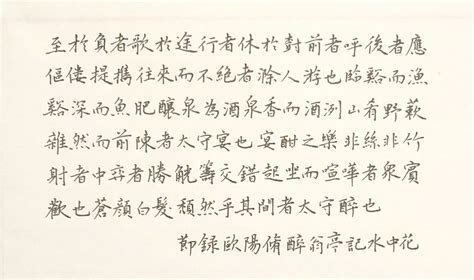 至於負者歌於途行者休於對前者呼後者應
傴僂提攜往來而不絕者滁人游也臨谿而漁
谿深而魚肥釀泉為酒泉香而酒洌山肴野蔌
雜然而前陳者太守宴也宴酣之樂非絲非竹
射者中弈者勝觥籌交錯起坐而喧嘩者眾賓
歡也蒼顏白髮頹然乎其間者太守醉也
節録歐陽脩醉翁亭記水中花